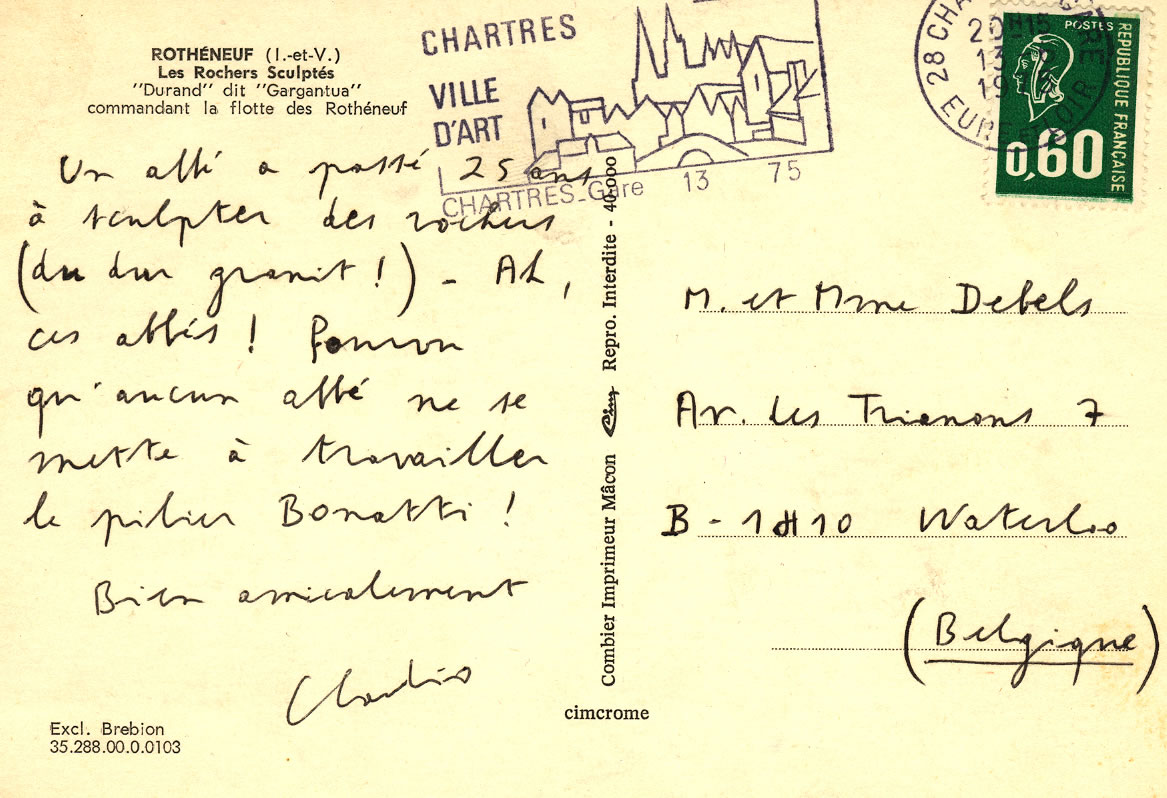 ROTHÉNEUF (I.-et-V.)
Les Rochers Sculptés
"Durand" dit "Gargantua"
commandant la flotte des Rothéneuf
Un abbé a passé 25 ans
à sculpter des rochers
(du dur granit !) - Ah,
ces abbés ! Pourvu
qu'aucun abbé ne se
mette à travailler
le pilier Bonatti !
Bien amicalement
Claudio
Excl. Brebion
35.288.00.0.0103
CHARTRES
VILLE
D'ART
CHARTRES-Gare 13 75
Combier Imprimeur Mâcon Cim Repro. Interdite - 40.000
cimcrome
28 CHARTRES GARE
20H15
13
19
EURE ET LOIR
POSTES
REPUBLIQUE FRANÇAISE
0,60
M. et Mme Debels
Av. les Trianons 7
B - 1410 Waterloo
(Belgique)